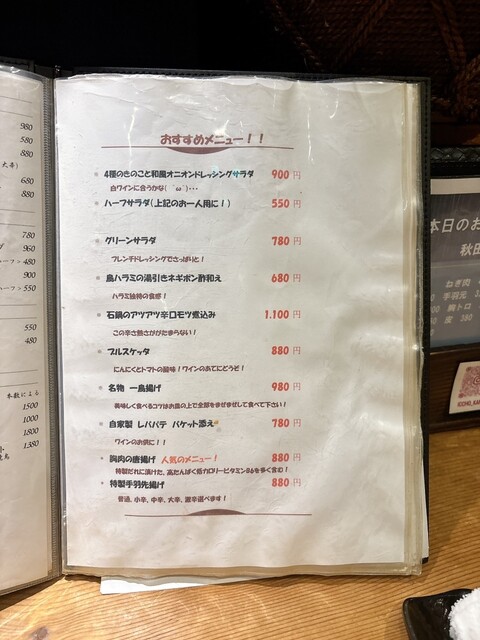 980
580
880
大辛)
680
880
780
960
ハーフ > 480
900
ハーフ > 550
550
480
本数による
1500
1000
1800
1380
おすすめメニュー！！
4種のきのこと和風オニオンドレッシングサラダ 900 円
白ワインに合うかな(´ω`)･･･
ハーフサラダ(上記のお一人用に！) 550 円
グリーンサラダ 780 円
フレンチドレッシングでさっぱりと！
鳥ハラミの湯引きネギポン酢和え 680 円
ハラミ独特の食感！
石鍋のアツアツ辛口モツ煮込み 1.100 円
この辛さ熱さがたまらない！
ブルスケッタ 880 円
にんにくとトマトの酸味！ワインのあてにどうぞ！
名物 一鳥揚げ 980 円
美味しく食べるコツはお皿の上で全部をまぜまぜして食べて下さい！
自家製 レバパテ バケット添え 780 円
ワインのお供に！！
胸肉の唐揚げ 人気のメニュー！ 880 円
特製だれに漬けた、高たんぱく低カロリービタミンB6を多く含む！
特製手羽先揚げ 880 円
普通、小辛、中辛、大辛、激辛選べます！
本日のお
秋田
ねぎ肉
手羽元
胸トロ
皮 380